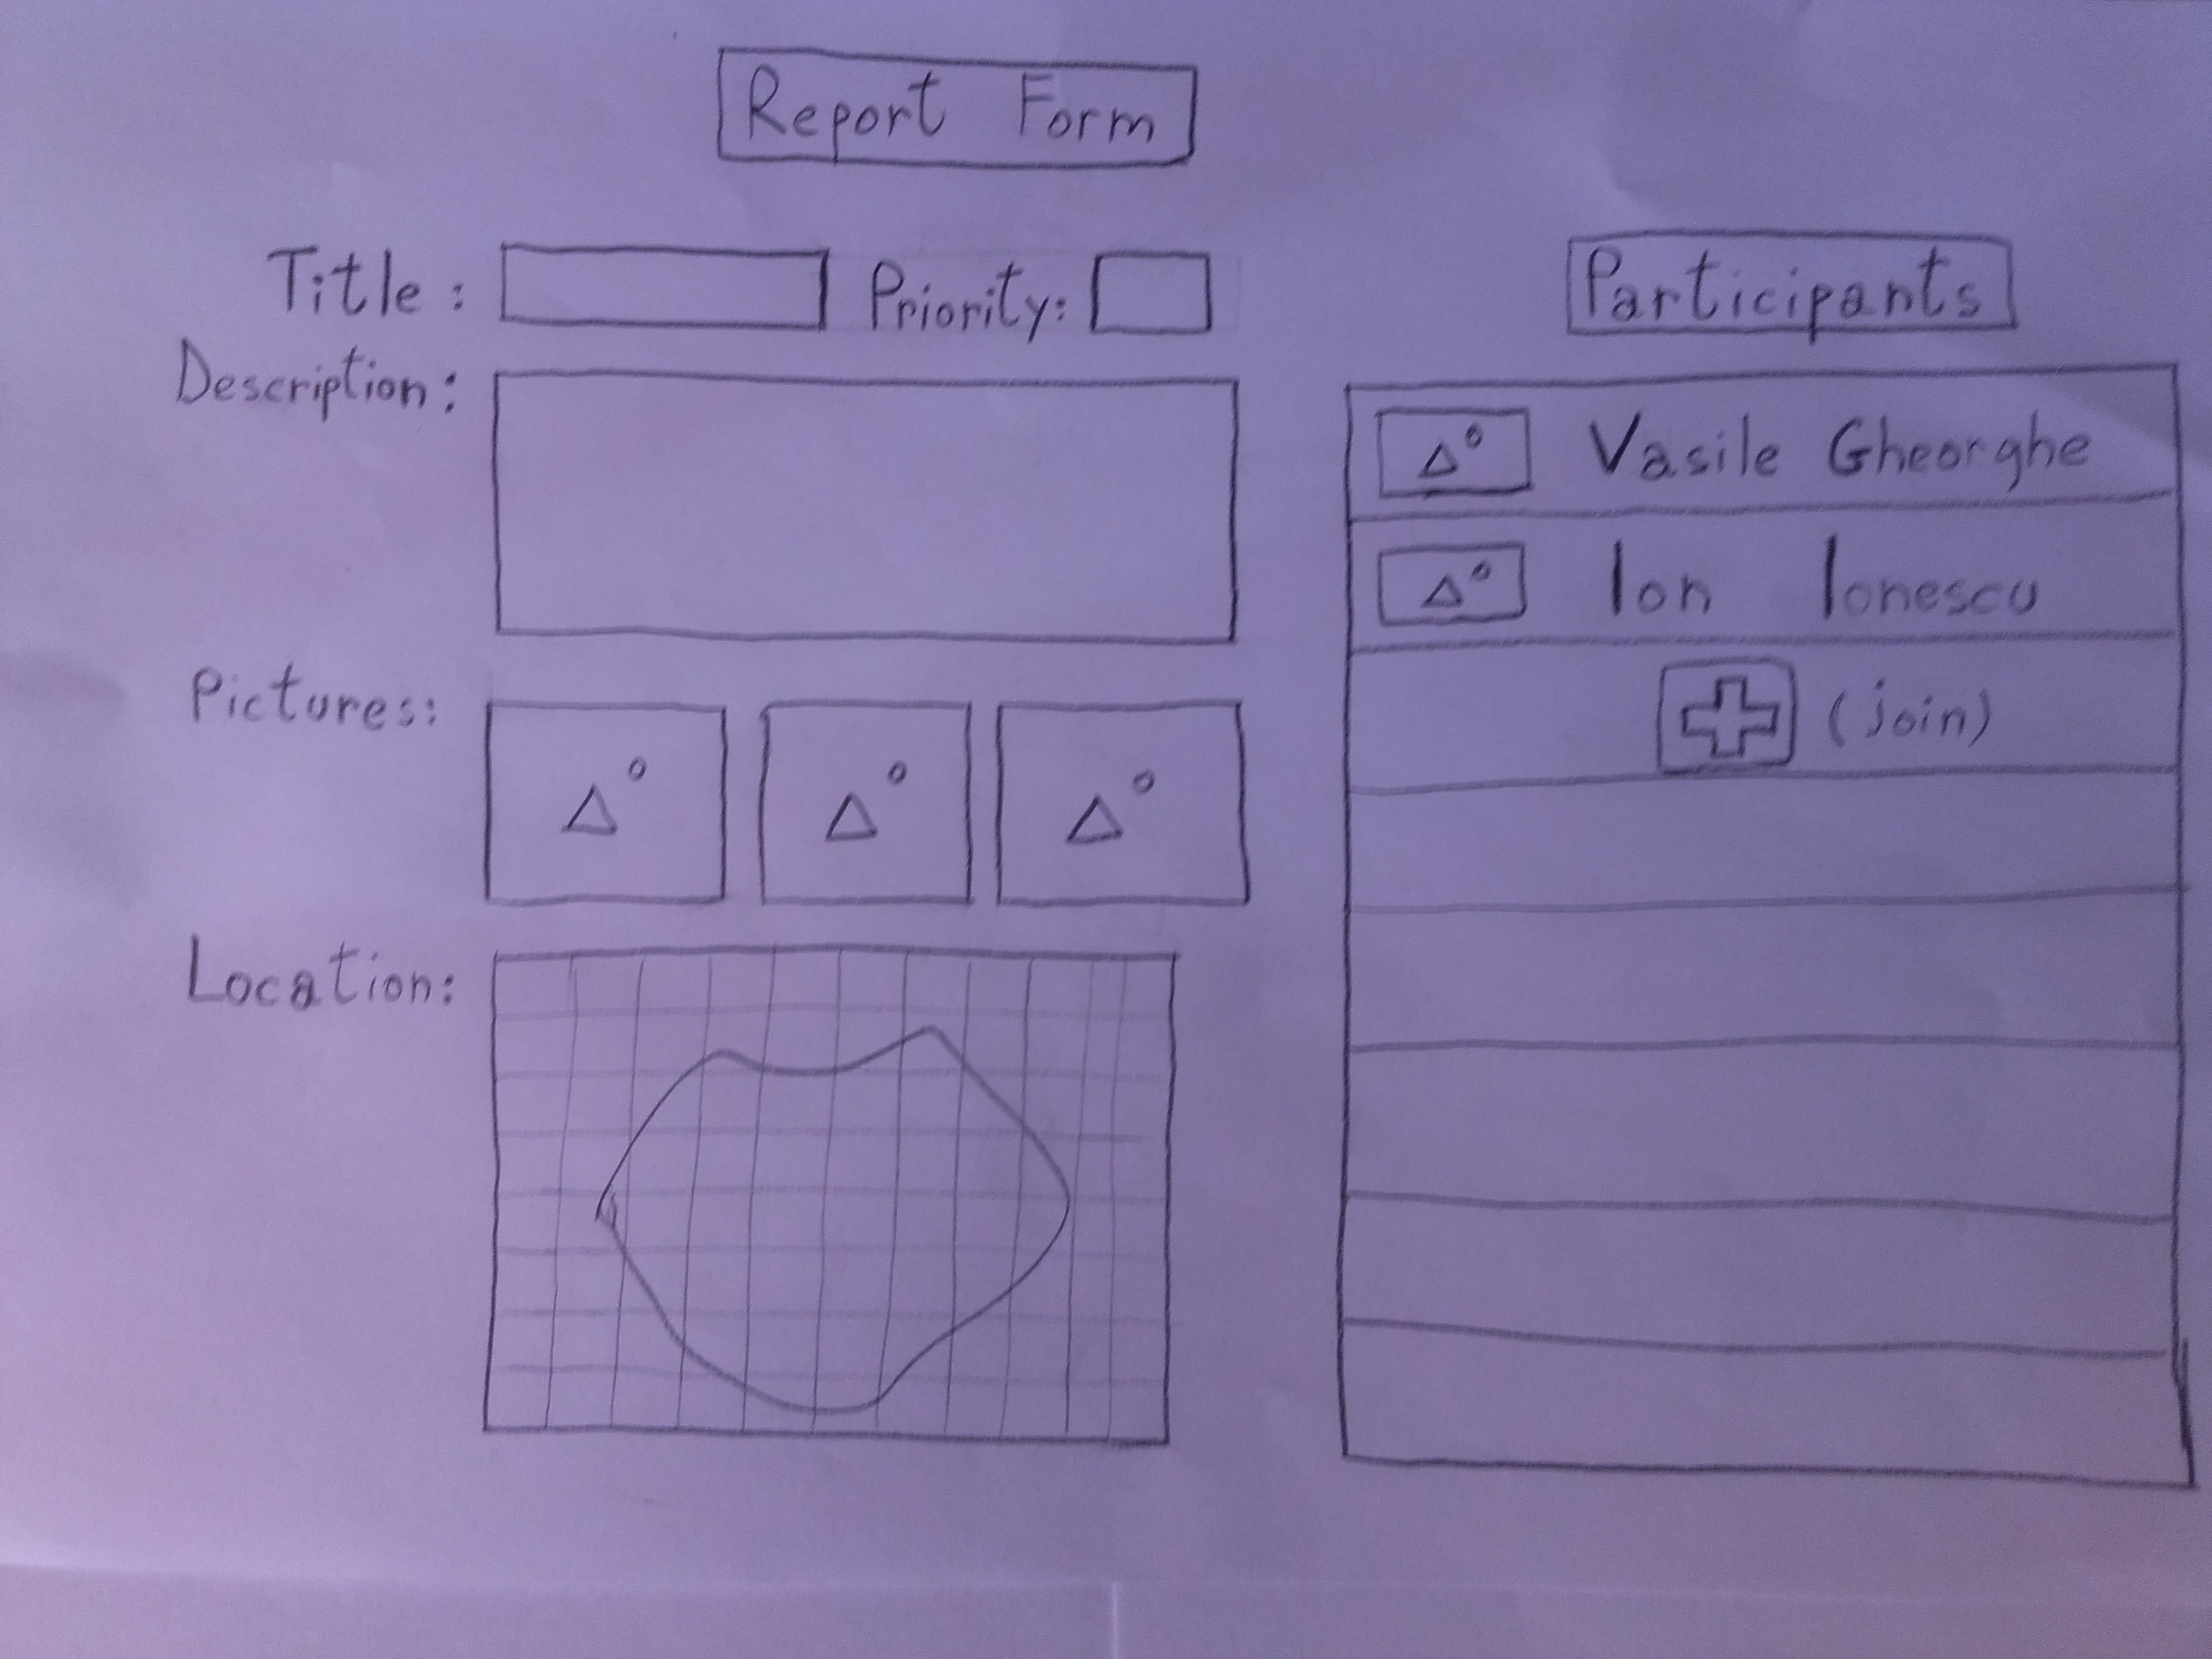 Report Form
Title:
Priority:
Description:
Pictures:
Location:
Participants
Vasile Gheorghe
Ion Ionescu
(join)